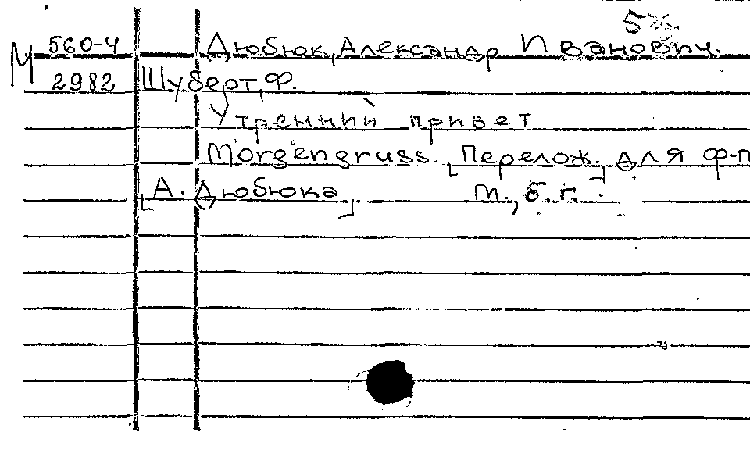 М 560-4 Дюбюк, Александр Иванович.
2982 Шуберт, Ф.
Утренний привет
Morgengruss. [Перелож.] для ф-п
[А. Дюбюка] М., б. г.